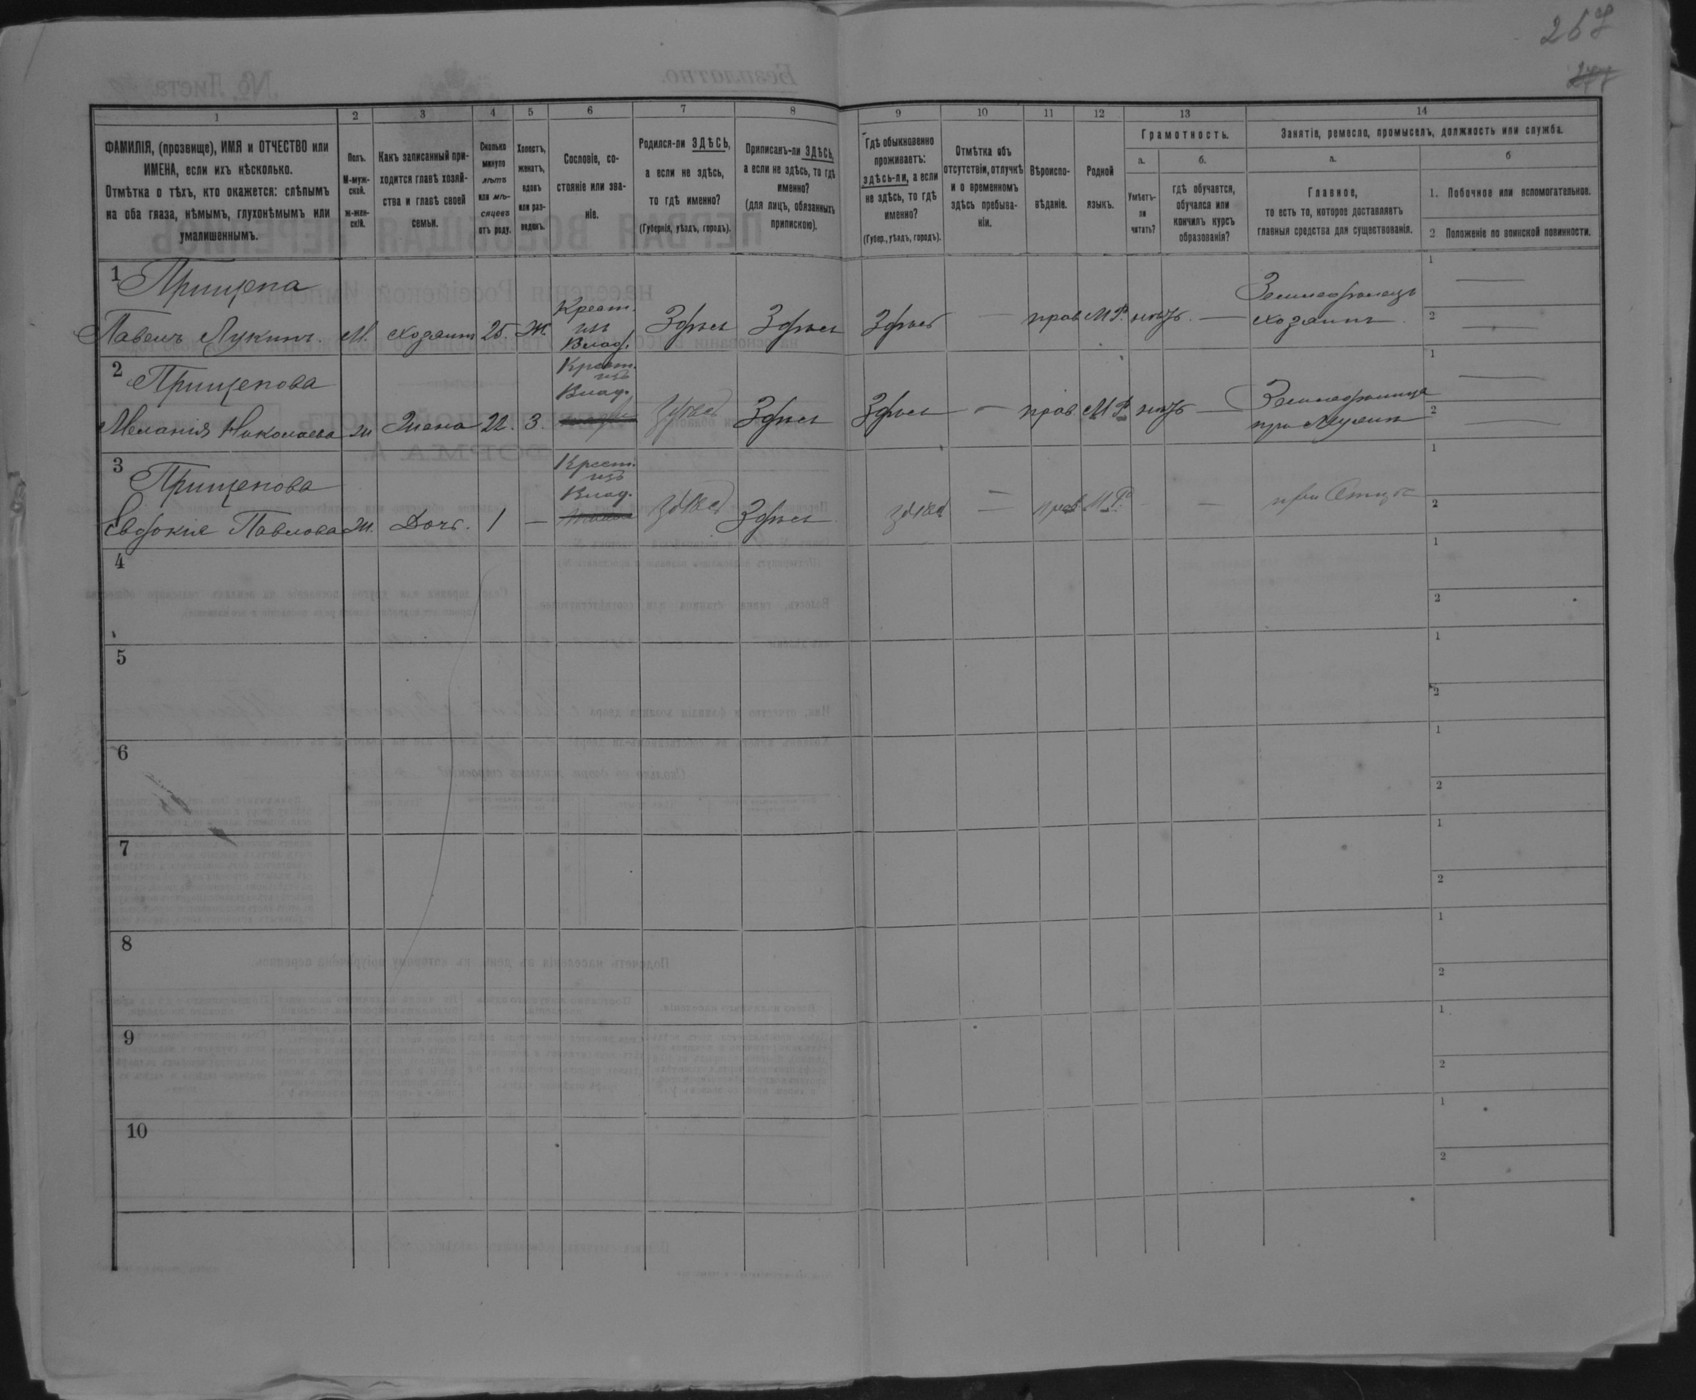 267
277
1
2
3
4
5
6
7
8
9
10
11
12
13
14
ФАМИЛІЯ, (прозвище), ИМЯ и ОТЧЕСТВО или
ИМЕНА, если ихъ нѣсколько.
Отмѣтка о тѣхъ, кто окажется: слѣпымъ
на оба глаза, нѣмымъ, глухонѣмымъ или
умалишеннымъ.
Полъ.
М-муж-
ской.
ж-жен-
скій.
Какъ записанный при-
ходится главѣ хозяй-
ства и главѣ своей
семьи.
Сколько
минуло
лѣтъ
или мѣ-
сяцевъ
отъ роду.
Холостъ,
женатъ,
вдовъ
или раз-
веденъ.
Сословіе, со-
стояніе или зва-
ніе.
Родился-ли ЗДѢСЬ,
а если не здѣсь,
то гдѣ именно?
(Губернія, уѣздъ, городъ).
Приписанъ-ли ЗДѢСЬ,
а если не здѣсь, то гдѣ
именно?
(для лицъ, обязанныхъ
припискою).
Гдѣ обыкновенно
проживаетъ:
здѣсь-ли, а если
не здѣсь, то гдѣ
именно?
(Губер., уѣздъ, городъ).
Отмѣтка объ
отсутствіи, отлучкѣ
и о временномъ
здѣсь пребыва-
ніи.
Вѣроиспо-
вѣданіе.
Родной
языкъ.
Грамотность.
а.
б.
Умѣетъ-
ли
читать?
гдѣ обучается,
обучался или
кончилъ курсъ
образованія?
Занятіе, ремесло, промыселъ, должность или служба.
а.
б
Главное,
то есть то, которое доставляетъ
главныя средства для существованія.
1. Побочное или вспомогательное.
2 Положеніе по воинской повинности.
1 Прищепа
Павелъ Лукинъ. М. хозяинъ 25. Ж. Крест. изъ Влад. Здѣсь Здѣсь Здѣсь — прав. М.Р. нѣтъ — Земледѣлецъ хозяинъ
1 —
2 —
2 Прищепова
Меланія Николаева Ж Жена 22. З. Крест. изъ Влад. здѣсь Здѣсь Здѣсь — прав М.Р. нѣтъ — Земледѣлица при Мужѣ
1 —
2 —
3 Прищепова
Евдокія Павлова Ж. Дочь. 1 — Крест. изъ Влад. здѣсь Здѣсь здѣсь — прав М.Р. — при Отцѣ
1
2
4
1
2
5
1
2
6
1
2
7
1
2
8
1
2
9
1
2
10
1
2